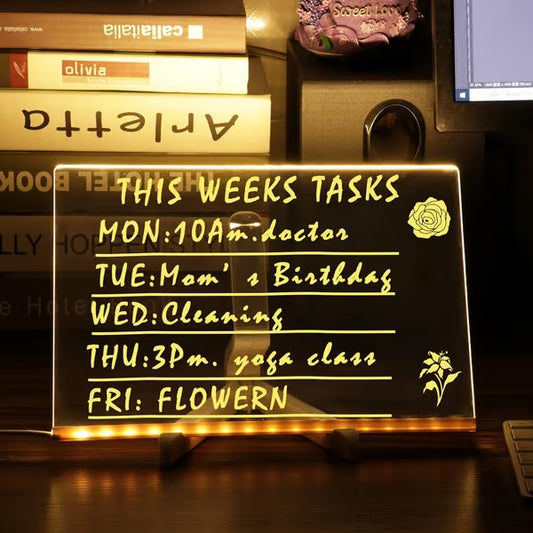 www.callaitalia.com callaitalia
olivia
Arletta
THE HOTEL BOOK
Sweet Love
THIS WEEKS TASKS
MON:10Am.doctor
TUE:Mom's Birthdag
WED:Cleaning
THU:3Pm. yoga class
FRI: FLOWERN